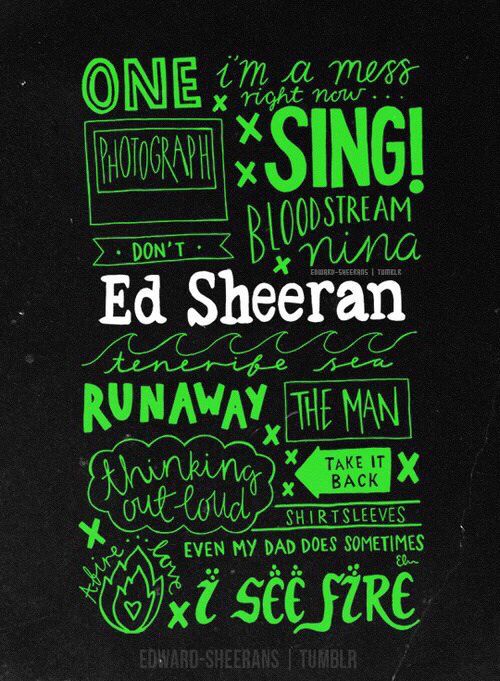 ONE
i'm a mess
right now...
PHOTOGRAPH
SING!
BLOODSTREAM
DON'T
nina
EDWARD-SHEERANS | TUMBLR
Ed Sheeran
tenerife sea
RUNAWAY
THE MAN
thinking
out loud
TAKE IT
BACK
SHIRTSLEEVES
EVEN MY DAD DOES SOMETIMES
Afire Love
i SEE FIRE
EDWARD-SHEERANS | TUMBLR